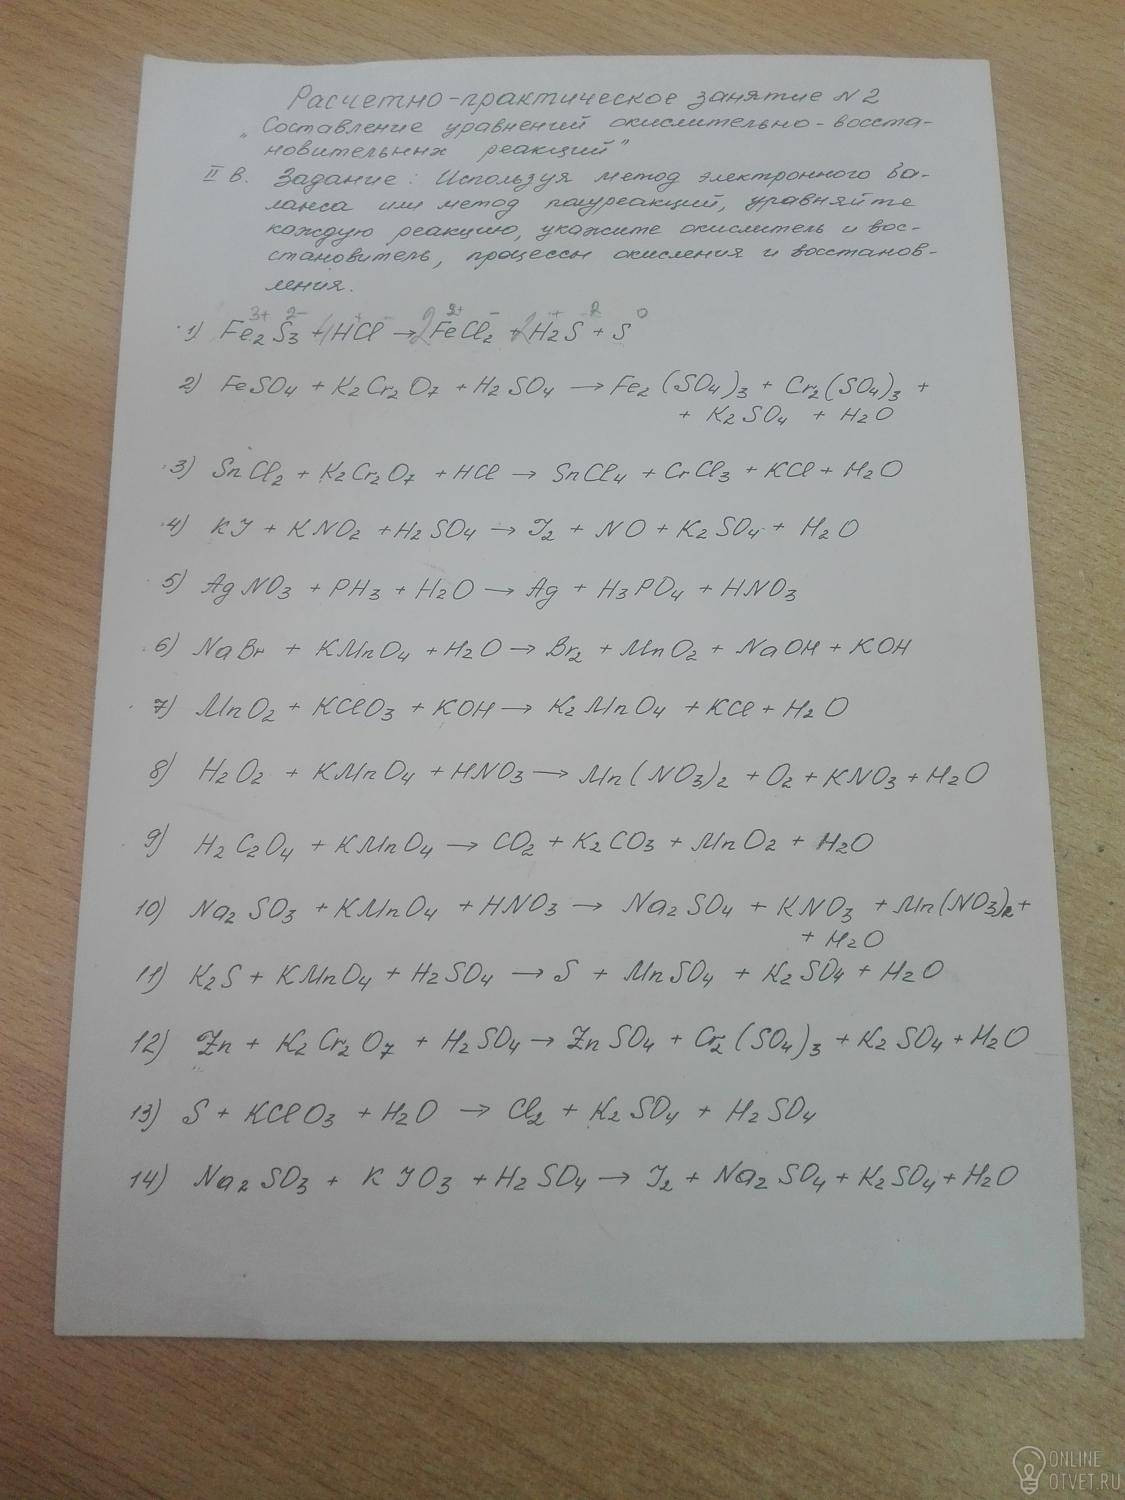 Расчетно-практическое занятие N2
„Составление уравнений окислительно-восста-
новительных реакций"
II в. Задание: Используя метод электронного ба-
ланса или метод полуреакций, уравняйте
каждую реакцию, укажите окислитель и вос-
становитель, процессы окисления и восстанов-
ления.
3+ 2- + - 2+ + 2 0
1) Fe₂S₃ + 4HCl → 2FeCl₂ + 2H₂S + S
2) FeSO₄ + K₂Cr₂O₇ + H₂SO₄ → Fe₂(SO₄)₃ + Cr₂(SO₄)₃ +
+ K₂SO₄ + H₂O
3) SnCl₂ + K₂Cr₂O₇ + HCl → SnCl₄ + CrCl₃ + KCl + H₂O
4) KJ + KNO₂ + H₂SO₄ → J₂ + NO + K₂SO₄ + H₂O
5) AgNO₃ + PH₃ + H₂O → Ag + H₃PO₄ + HNO₃
6) NaBr + KMnO₄ + H₂O → Br₂ + MnO₂ + NaOH + KOH
7) MnO₂ + KClO₃ + KOH → K₂MnO₄ + KCl + H₂O
8) H₂O₂ + KMnO₄ + HNO₃ → Mn(NO₃)₂ + O₂ + KNO₃ + H₂O
9) H₂C₂O₄ + KMnO₄ → CO₂ + K₂CO₃ + MnO₂ + H₂O
10) Na₂SO₃ + KMnO₄ + HNO₃ → Na₂SO₄ + KNO₃ + Mn(NO₃)₂ +
+ H₂O
11) K₂S + KMnO₄ + H₂SO₄ → S + MnSO₄ + K₂SO₄ + H₂O
12) Zn + K₂Cr₂O₇ + H₂SO₄ → ZnSO₄ + Cr₂(SO₄)₃ + K₂SO₄ + H₂O
13) S + KClO₃ + H₂O → Cl₂ + K₂SO₄ + H₂SO₄
14) Na₂SO₃ + KJO₃ + H₂SO₄ → J₂ + Na₂SO₄ + K₂SO₄ + H₂O
ONLINE
OTVET.RU